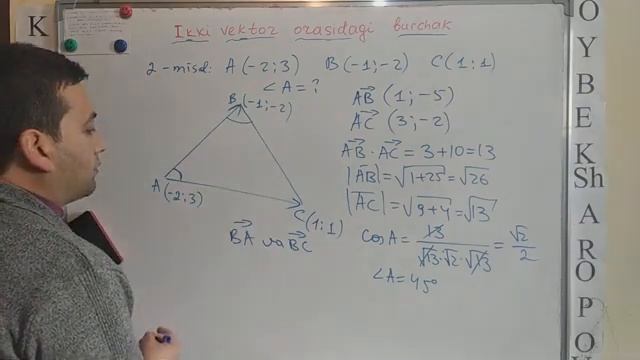 K
Ikki vektor orasidagi burchak
2-misol: A(-2;3) B(-1;-2) C(1;1)
∠A=?
B(-1;-2)
A(-2;3)
C(1;1)
BA va BC
AB (1;-5)
AC (3;-2)
AB · AC = 3+10=13
|AB|=√1+25=√26
|AC|=√9+4=√13
cosA= 13 / √13·√2·√13 = √2/2
∠A=45°
O
Y
B
E
K
Sh
A
R
O
P
O